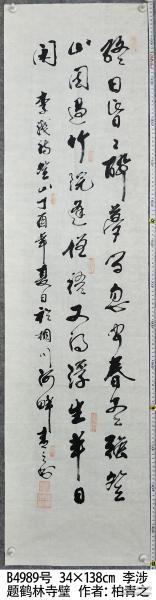 终日昏昏醉梦间忽闻春尽强登
山因过竹院逢僧话又得浮生半日
闲 李涉诗登山丁酉年夏日於桐川河畔青之书
B4989号 34×138cm 李涉
题鹤林寺壁 作者:柏青之